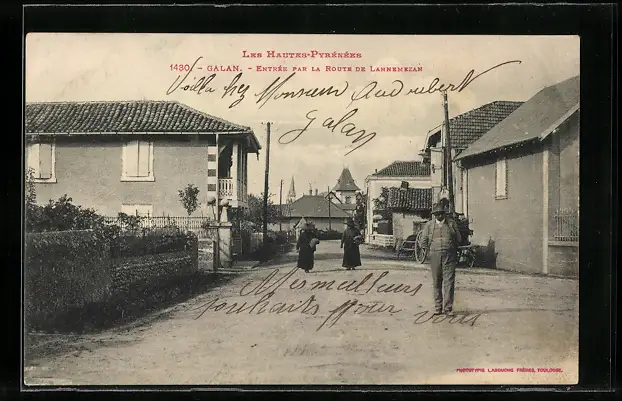 LES HAUTES-PYRÉNÉES
1430. - GALAN. - ENTRÉE PAR LA ROUTE DE LANNEMEZAN
Voilla chez Monsieur Audoubert
Galan
Mes meilleurs
souhaits pour vous
PHOTOTYPIE LABOUCHE FRÈRES, TOULOUSE.